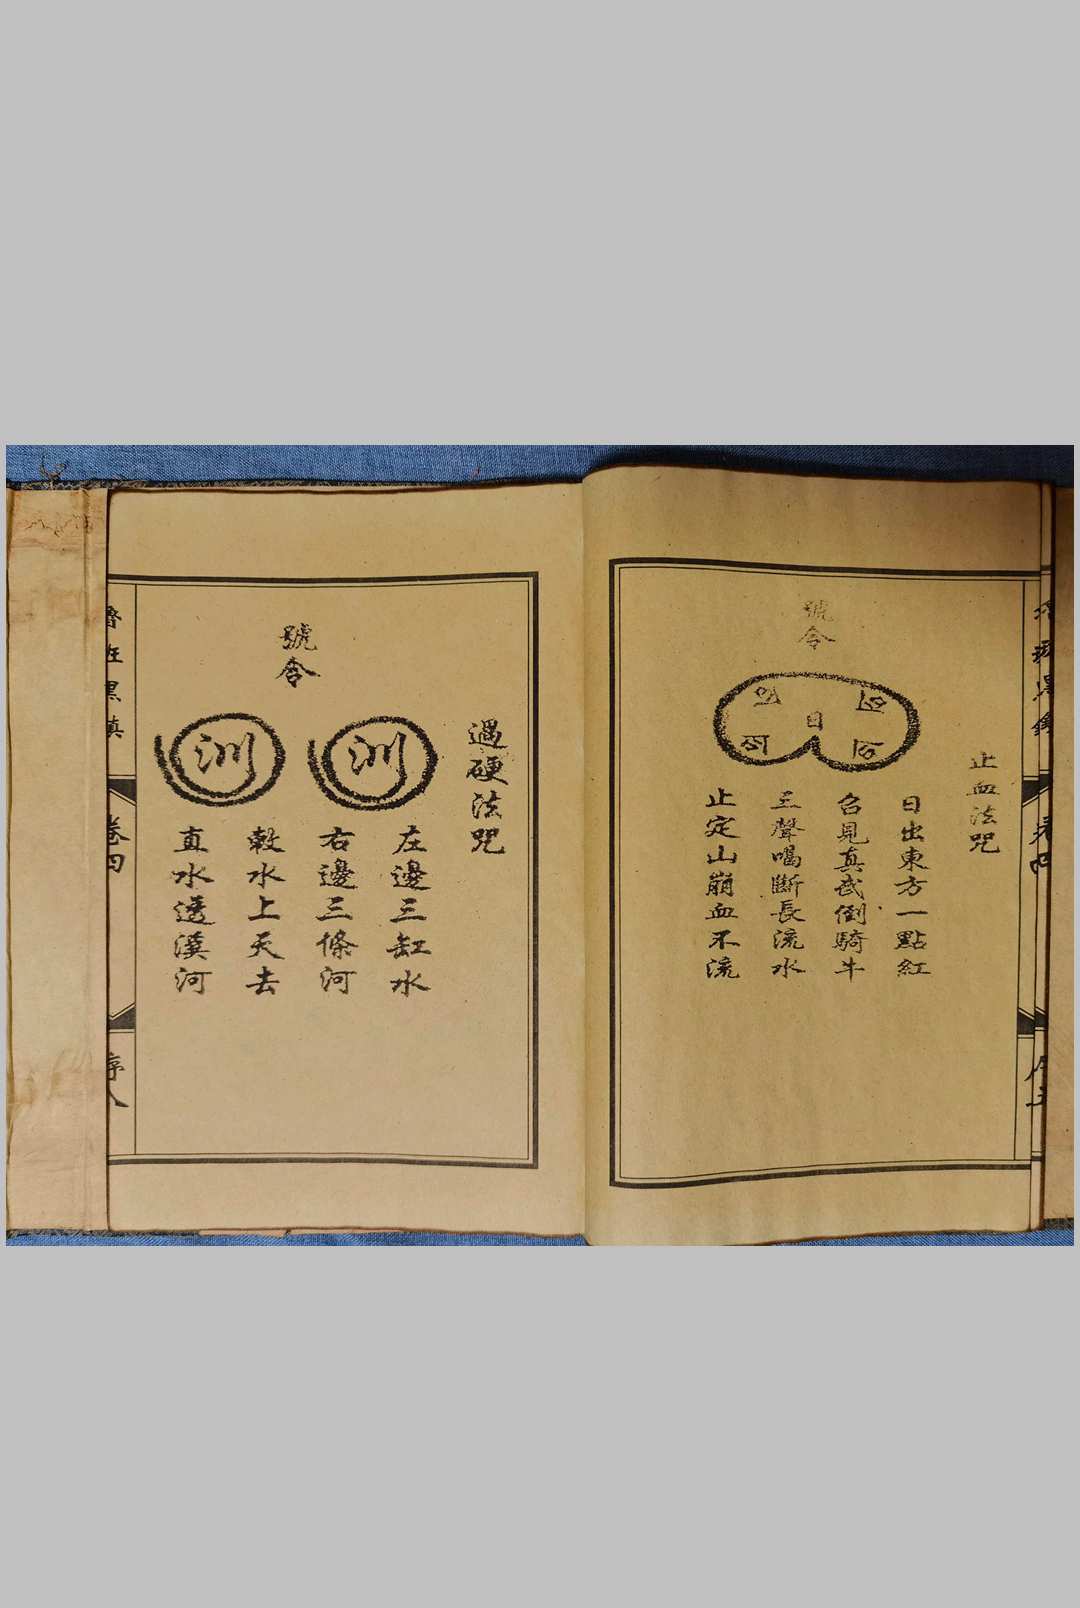 止血法咒
號令
日
日出東方一點紅
召見真武倒騎牛
三聲喝斷長流水
止定山崩血不流
過硬法咒
號令
汌
汌
左邊三缸水
右邊三條河
敕水上天去
直水透漢河
魯班黑鎮
卷四
序八